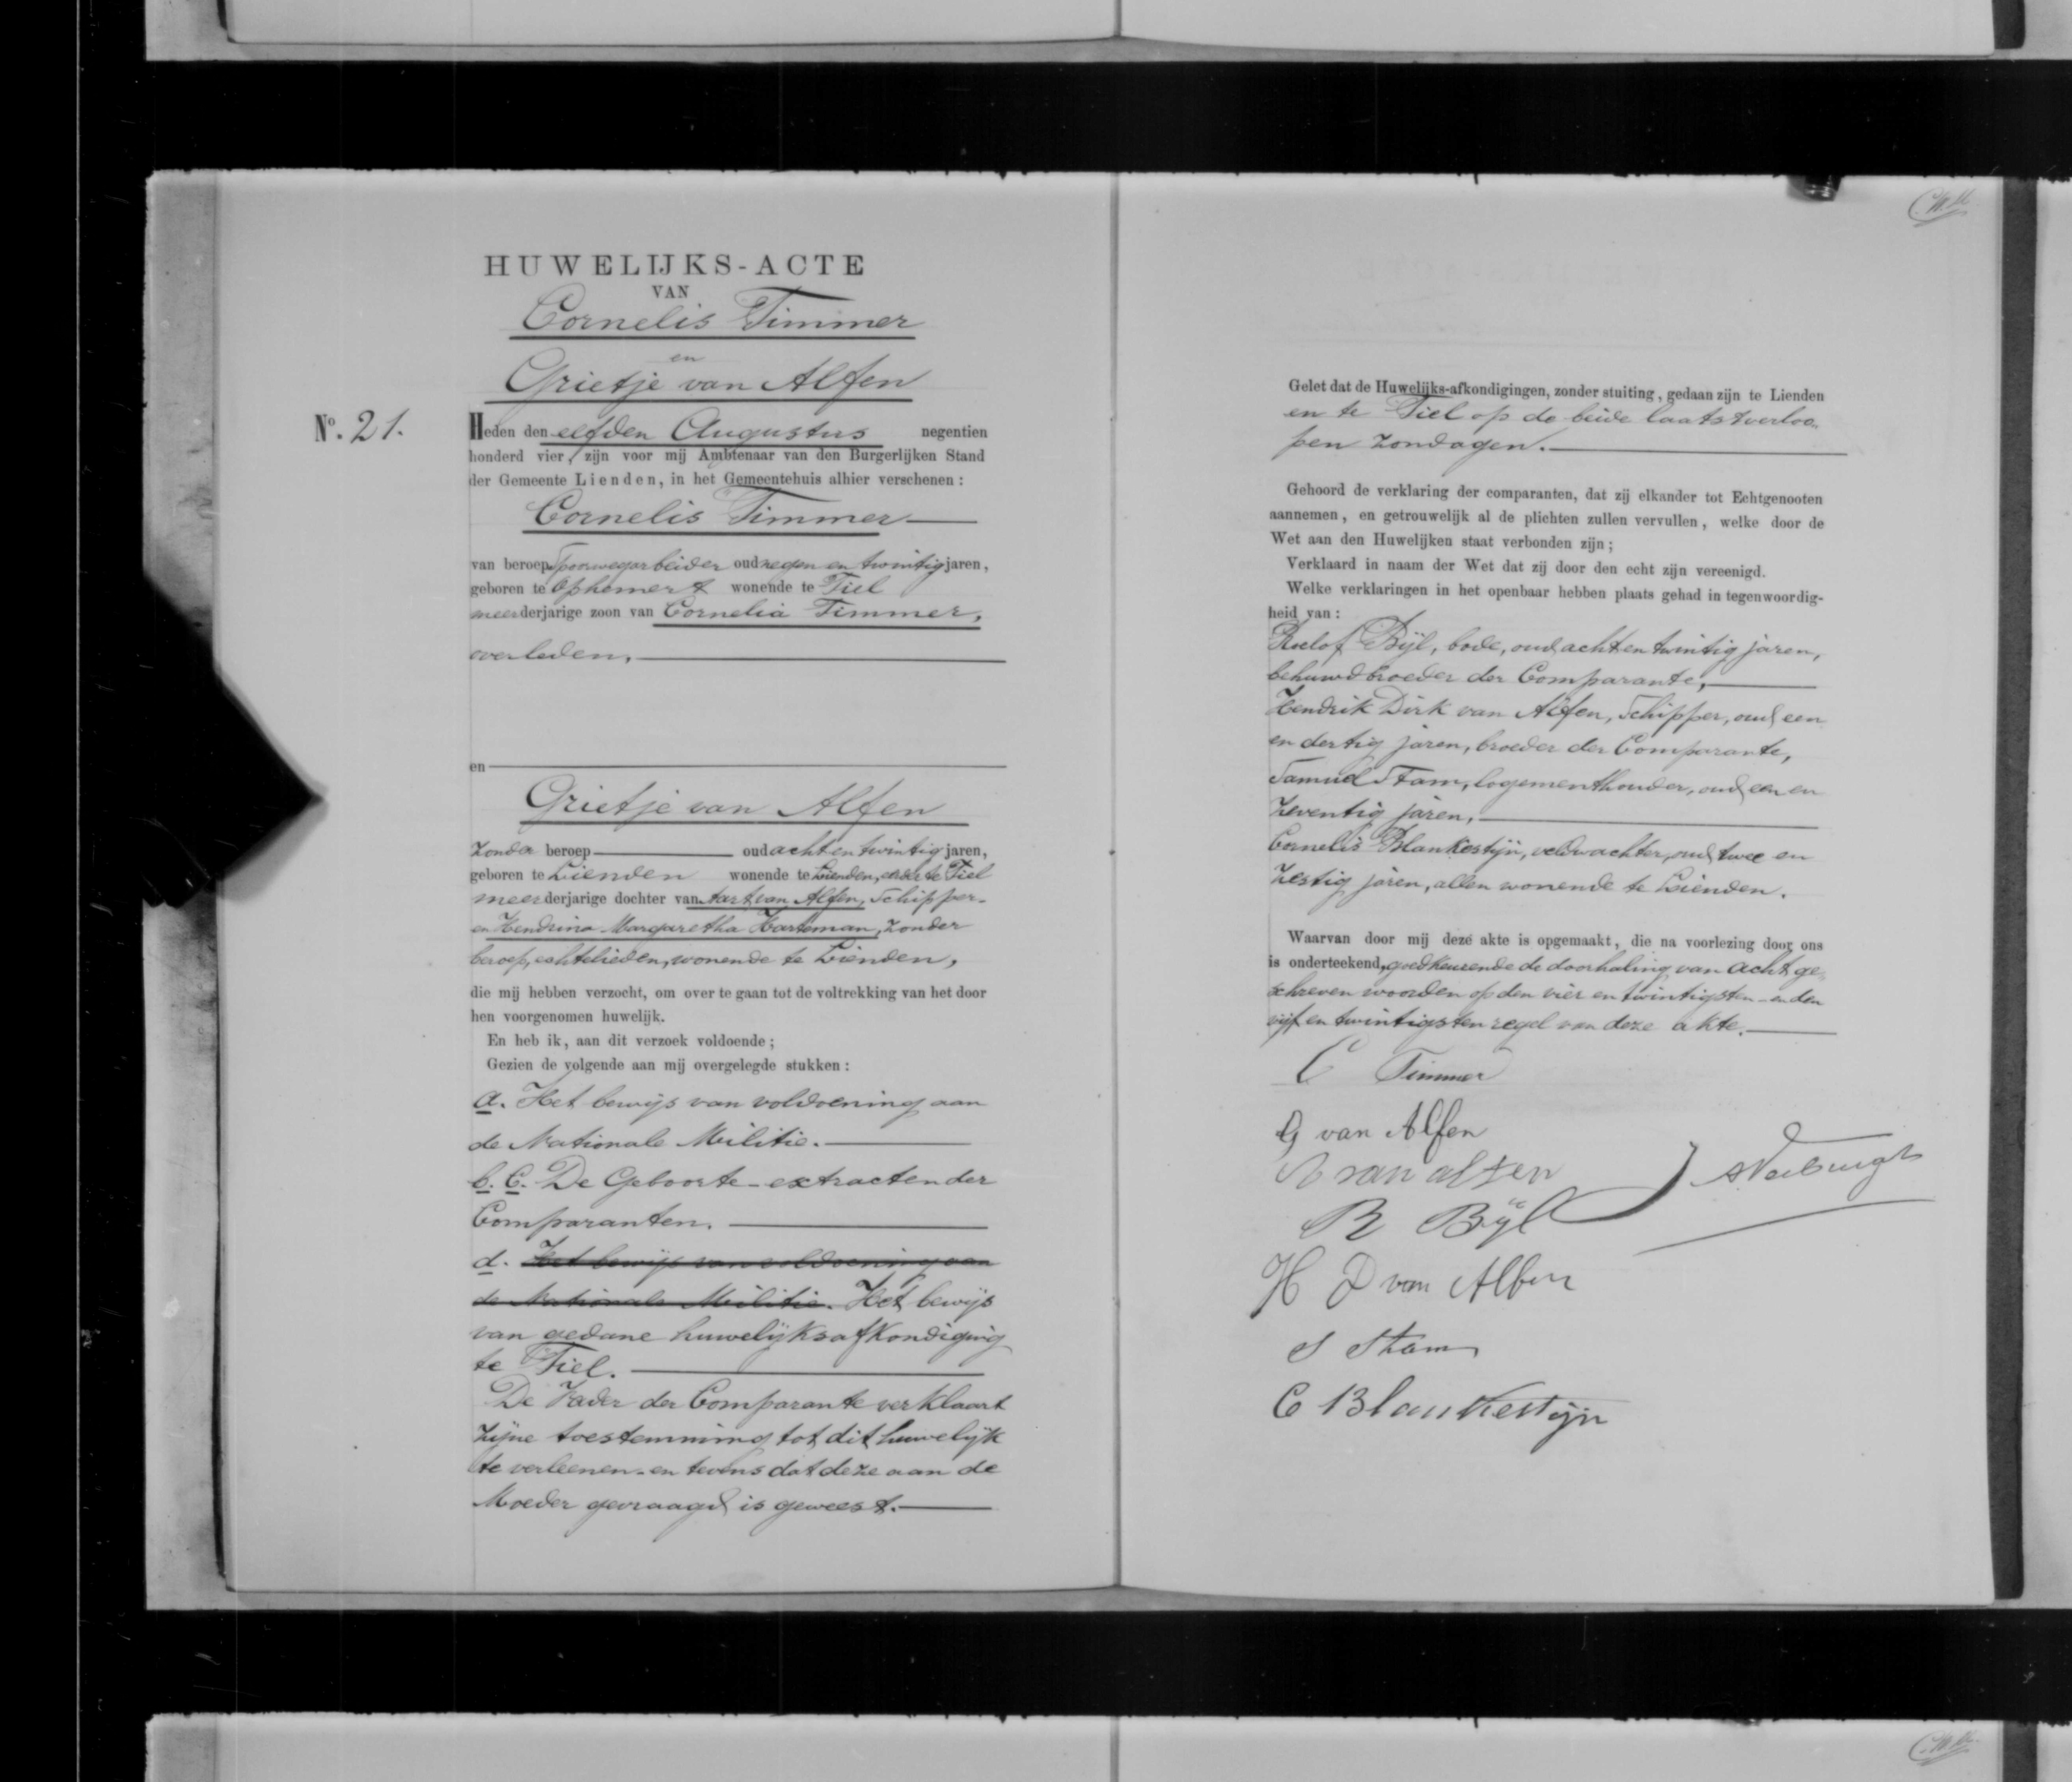 HUWELIJKS-ACTE
VAN
Cornelis Timmer
en
Grietje van Alfen
No. 21.
Heden den elfden Augustus negentien
honderd vier, zijn voor mij Ambtenaar van den Burgerlijken Stand
der Gemeente Lienden, in het Gemeentehuis alhier verschenen:
Cornelis Timmer
van beroep Spoorwegarbeider oud negen en twintig jaren,
geboren te Ophemert wonende te Tiel
meerderjarige zoon van Cornelia Timmer,
overleden,
en
Grietje van Alfen
zonder beroep oud acht en twintig jaren,
geboren te Lienden wonende te Lienden, eerder te Tiel
meerderjarige dochter van Aart van Alfen, Schipper
en Hendrina Margaretha Harteman, zonder
beroep, echtelieden, wonende te Lienden,
die mij hebben verzocht, om over te gaan tot de voltrekking van het door
hen voorgenomen huwelijk.
En heb ik, aan dit verzoek voldoende;
Gezien de volgende aan mij overgelegde stukken:
a. Het bewijs van voldoening aan
de Nationale Militie.
b. C. De Geboorte-extracten der
Comparanten.
d. Het bewijs van voldoening aan
de Nationale Militie. Het bewijs
van gedane huwelijksafkondiging
te Tiel.
De Vader der Comparante verklaart
zijne toestemming tot dit huwelijk
te verleenen en tevens dat deze aan de
Moeder gevraagd is geweest.
Gelet dat de Huwelijks-afkondigingen, zonder stuiting, gedaan zijn te Lienden
en te Tiel op de beide laatstverloo-
pen zondagen.
Gehoord de verklaring der comparanten, dat zij elkander tot Echtgenooten
aannemen, en getrouwelijk al de plichten zullen vervullen, welke door de
Wet aan den Huwelijken staat verbonden zijn;
Verklaard in naam der Wet dat zij door den echt zijn vereenigd.
Welke verklaringen in het openbaar hebben plaats gehad in tegenwoordig-
heid van:
Roelof Bijl, bode, oud acht en twintig jaren,
behuwdbroeder der Comparante,
Hendrik Dirk van Alfen, Schipper, oud een
en dertig jaren, broeder der Comparante,
Samuel Stam, logementhouder, oud een en
zeventig jaren,
Cornelis Blankestijn, veldwachter, oud twee en
zestig jaren, allen wonende te Lienden.
Waarvan door mij deze akte is opgemaakt, die na voorlezing door ons
is onderteekend, goedkeurende de doorhaling van acht ge-
schreven woorden op den vier en twintigsten en den
vijf en twintigsten regel van deze akte.
C Timmer
G van Alfen
A van alfen
R Bijl
H D van Alfen
S Stam
C Blankestijn